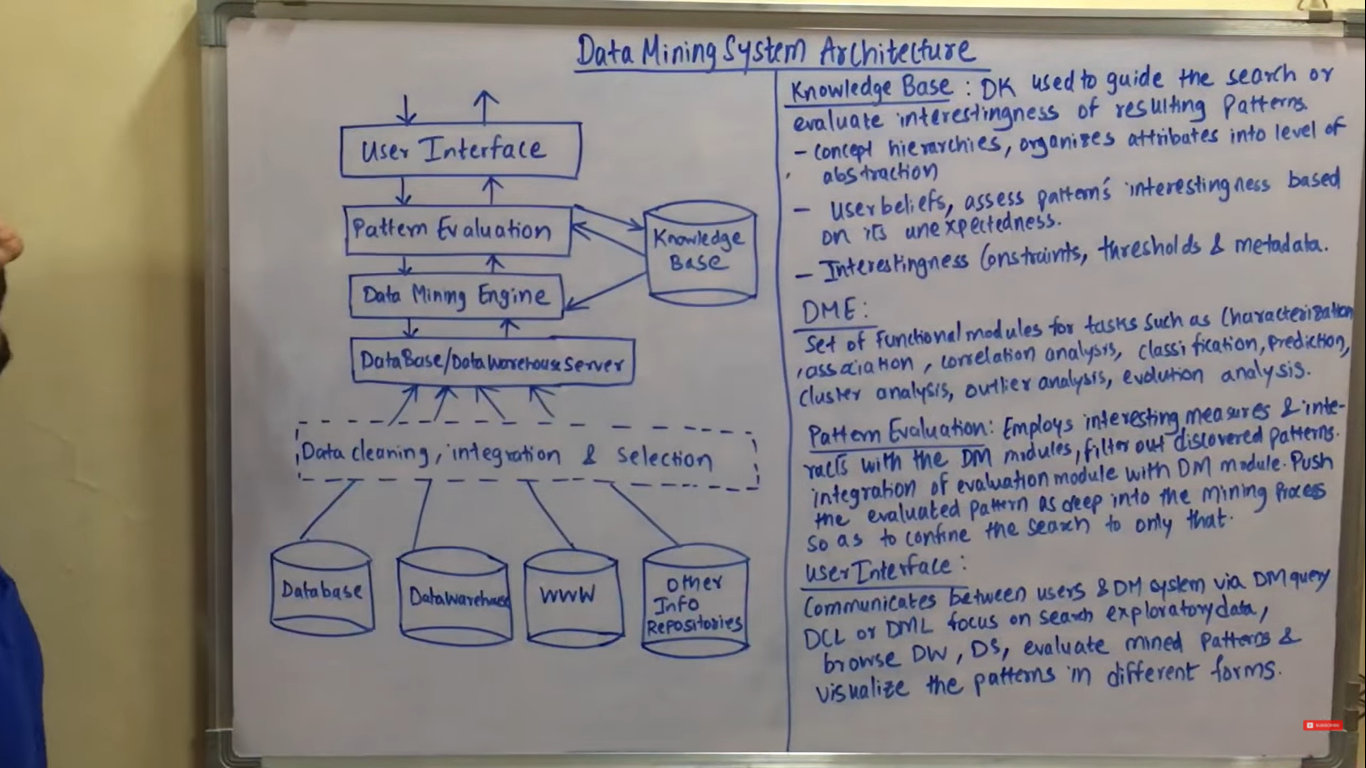 Data Mining System Architecture
User Interface
Pattern Evaluation
Knowledge
Base
Data Mining Engine
DataBase/DataWarehouseServer
Data cleaning, integration & selection
Database
DataWarehouse
WWW
Other
Info
Repositories
Knowledge Base : DK used to guide the search or
evaluate interestingness of resulting Patterns.
- Concept hierarchies, organizes attributes into level of
abstraction
- User beliefs, assess pattern's interestingness based
on its unexpectedness.
- Interestingness Constraints, thresholds & metadata.
DME :
Set of Functional modules for tasks such as Characterization
, association, correlation analysis, classification, Prediction,
cluster analysis, outlier analysis, evolution analysis.
Pattern Evaluation: Employs interesting measures & inte-
racts with the DM modules, filter out discovered patterns.
integration of evaluation module with DM module. Push
the evaluated pattern as deep into the mining Process
so as to confine the search to only that.
User Interface :
Communicates between users & DM system via DM query
DCL or DML focus on search exploratory data,
browse DW, DS, evaluate mined patterns &
visualize the patterns in different forms.
SUBSCRIBE